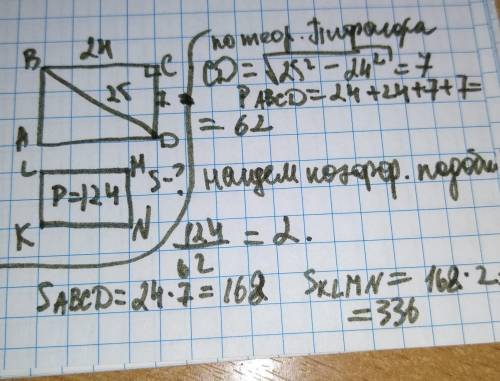 24
B C
25 7
A D
L M
P=124 S-?
K N
по теор. Пифагора
CD = √25² - 24² = 7
P ABCD = 24+24+7+7=
= 62
найдем коэфф. подоби
124/62 = 2.
S ABCD = 24·7 = 168
S KLMN = 168·2
= 336